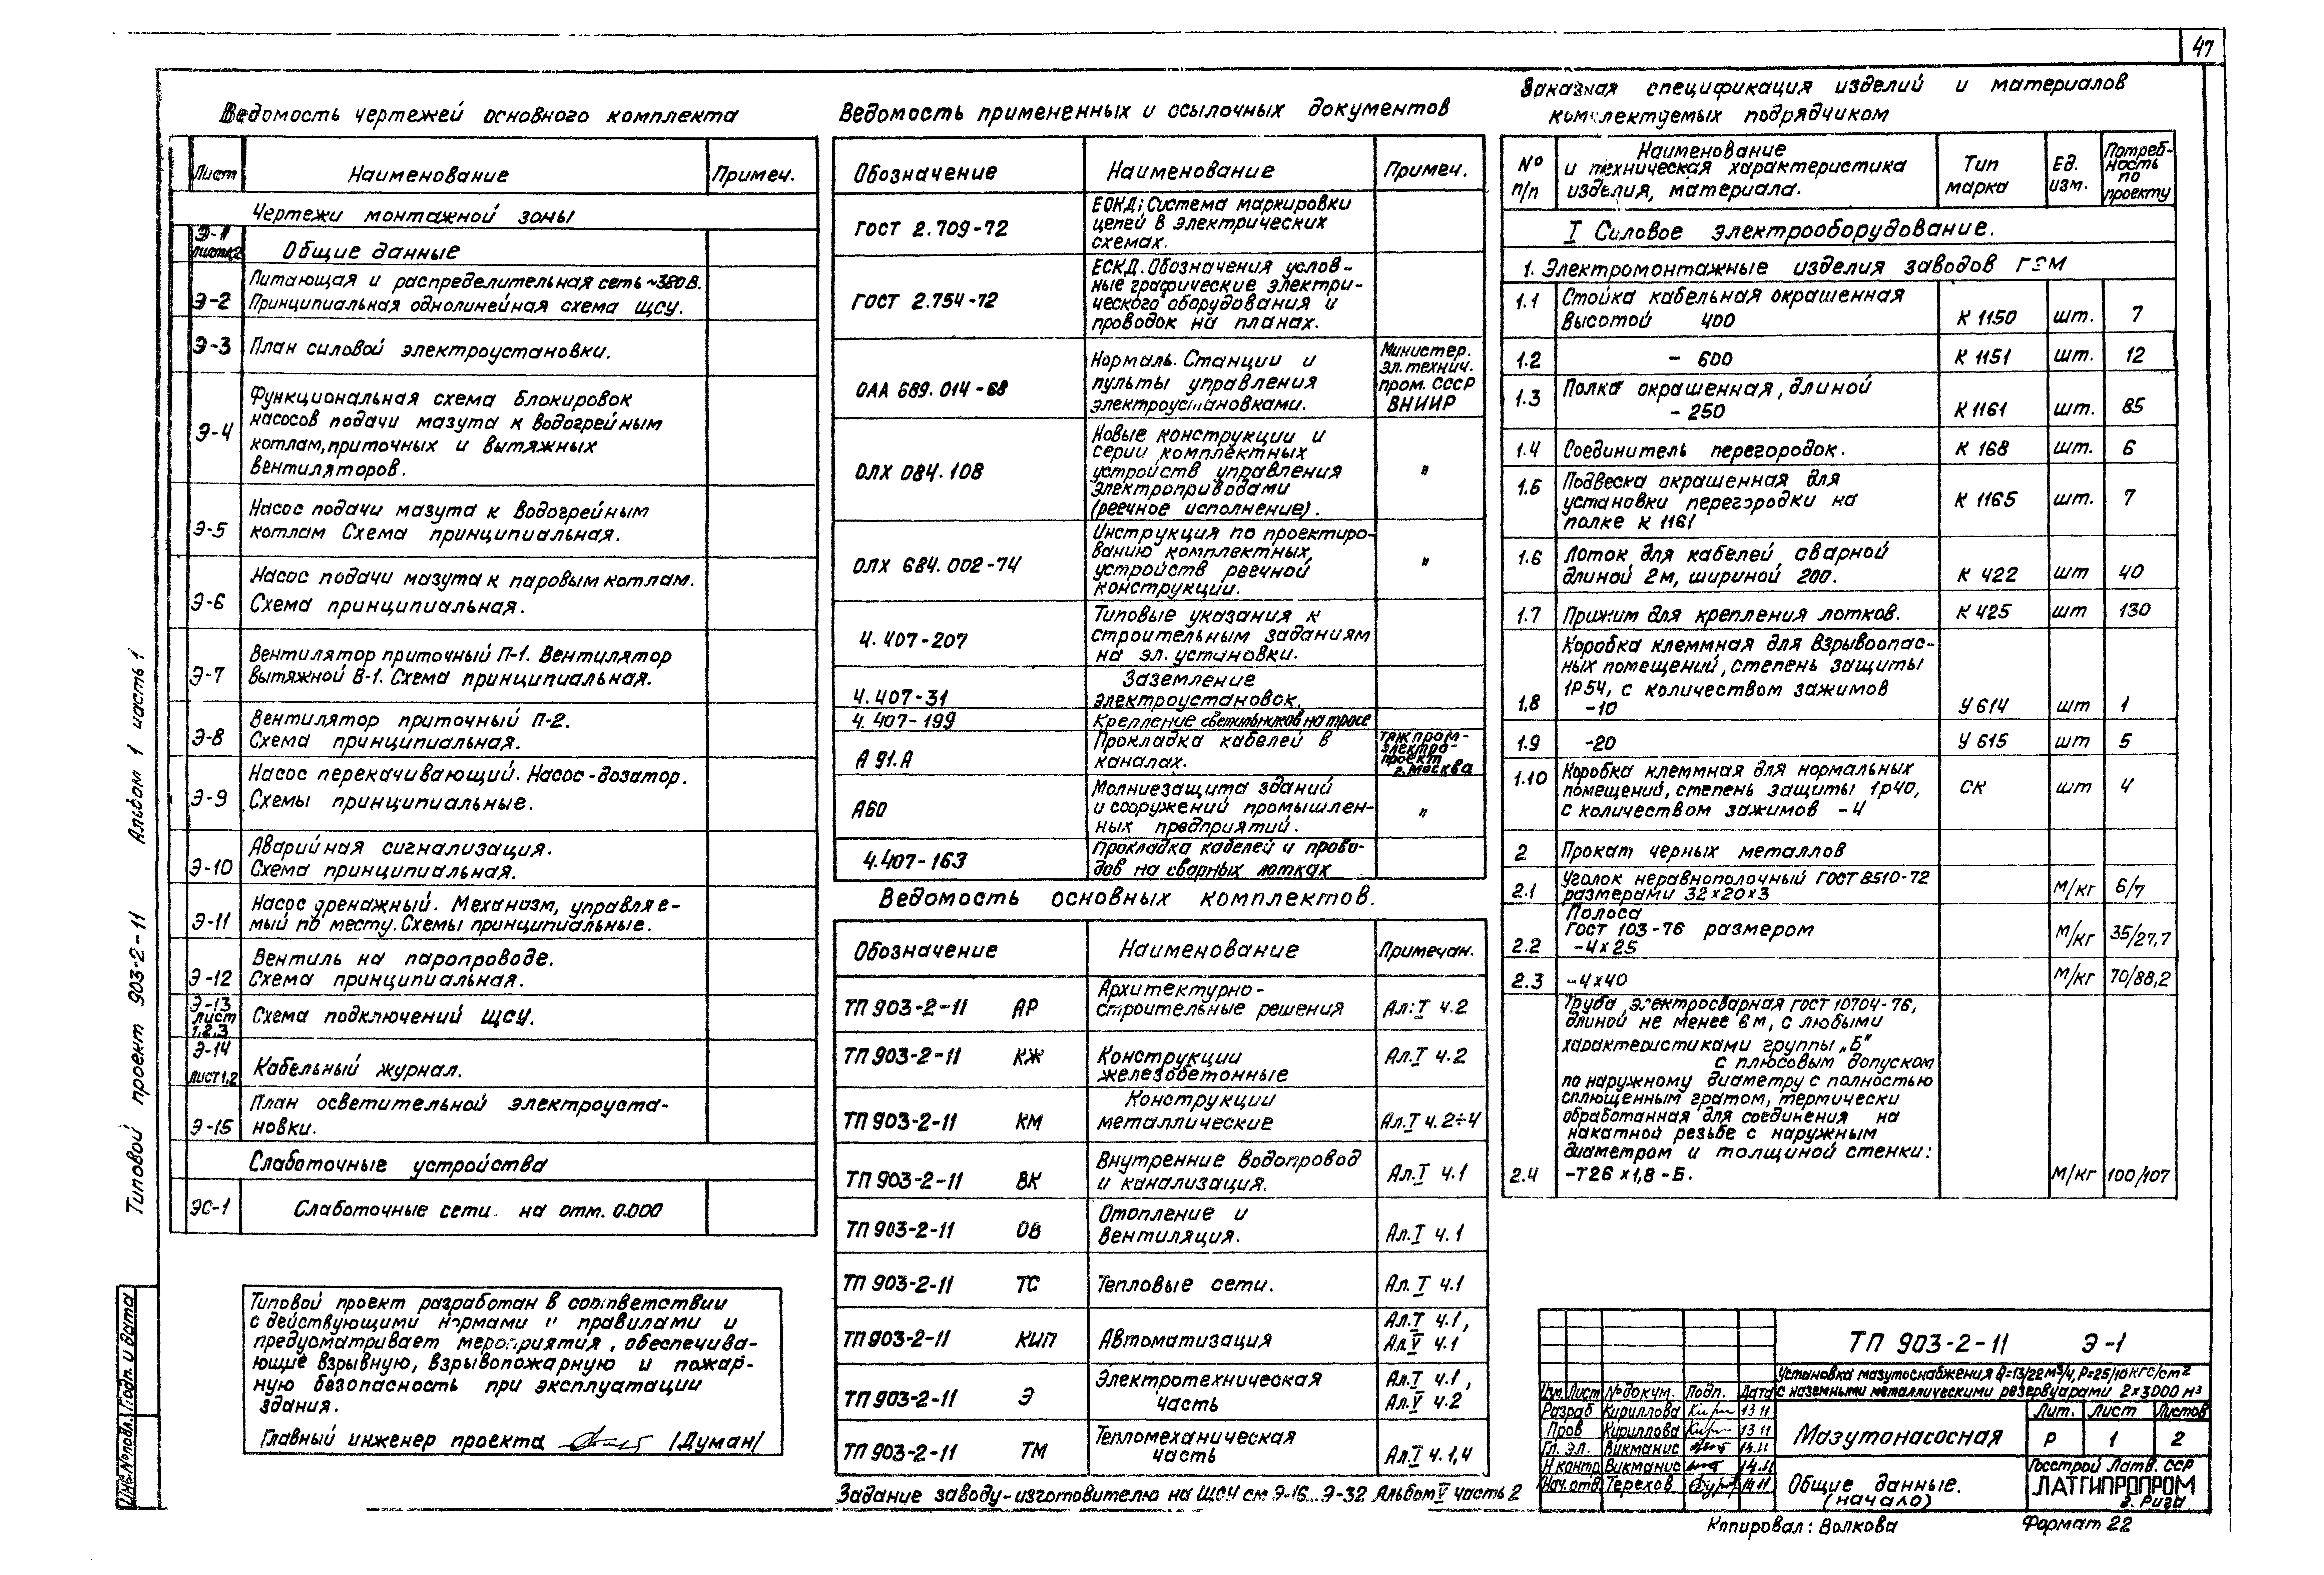 47
Ведомость чертежей основного комплекта
Лист Наименование Примеч.
Чертежи монтажной зоны
Э-1
листы 1,2 Общие данные
Питающая и распределительная сеть ~380В.
Э-2 Принципиальная однолинейная схема ЩСУ.
Э-3 План силовой электроустановки.
Функциональная схема блокировок
насосов подачи мазута к водогрейным
Э-4
котлам, приточных и вытяжных
вентиляторов.
Насос подачи мазута к водогрейным
Э-5 котлам Схема принципиальная.
Насос подачи мазута к паровым котлам.
Э-6 Схема принципиальная.
Вентилятор приточный П-1. Вентилятор
Э-7 вытяжной В-1. Схема принципиальная.
Вентилятор приточный П-2.
Э-8 Схема принципиальная.
Насос перекачивающий. Насос-дозатор.
Э-9 Схемы принципиальные.
Аварийная сигнализация.
Э-10 Схема принципиальная.
Насос дренажный. Механизм, управляе-
Э-11 мый по месту. Схемы принципиальные.
Вентиль на паропроводе.
Э-12 Схема принципиальная.
Э-13
лист
1,2,3 Схема подключений ЩСУ.
Э-14
лист 1,2 Кабельный журнал.
План осветительной электроуста-
Э-15 новки.
Слаботочные устройства
ЭС-1 Слаботочные сети на отм. 0.000
Типовой проект разработан в соответствии
с действующими нормами и правилами и
предусматривает мероприятия, обеспечива-
ющие взрывную, взрывопожарную и пожар-
ную безопасность при эксплуатации
здания.
Главный инженер проекта /Думан/
Ведомость примененных и ссылочных документов
Обозначение Наименование Примеч.
ГОСТ 2.709-72 ЕСКД; Система маркировки
цепей в электрических
схемах.
ГОСТ 2.754-72 ЕСКД. Обозначения услов-
ные графические электри-
ческого оборудования и
проводок на планах.
ОАА 689.014-68 Нормаль. Станции и
пульты управления
электроустановками.
Министер.
эл. технич.
пром. СССР
ВНИИР
ОЛХ 084.108 Новые конструкции и
серии комплектных
устройств управления "
электроприводами
(реечное исполнение).
ОЛХ 684.002-74 Инструкция по проектиро-
ванию комплектных
устройств реечной "
конструкции.
4.407-207 Типовые указания к
строительным заданиям
на эл. установки.
4.407-31 Заземление
электроустановок.
4.407-199 Крепление светильников на тросе
А 91.А Прокладка кабелей в
каналах.
тяжпром-
электро-
проект
г. Москва
А60 Молниезащита зданий
и сооружений промышлен- "
ных предприятий.
4.407-163 Прокладка кабелей и прово-
дов на сварных лотках
Ведомость основных комплектов.
Обозначение Наименование Примечан.
ТП 903-2-11 АР Архитектурно-
строительные решения Ал. I ч.2
ТП 903-2-11 КЖ Конструкции Ал. I ч.2
железобетонные
Конструкции
ТП 903-2-11 КМ металлические Ал. I ч.2÷4
ТП 903-2-11 ВК Внутренние водопровод
и канализация. Ал. I ч.1
ТП 903-2-11 ОВ Отопление и
вентиляция. Ал. I ч.1
ТП 903-2-11 ТС Тепловые сети. Ал. I ч.1
ТП 903-2-11 КИП Автоматизация Ал. I ч.1,
Ал. V ч.1
ТП 903-2-11 Э Электротехническая Ал. I ч.1,
часть Ал. V ч.2
ТП 903-2-11 ТМ Тепломеханическая
часть Ал. I ч.1,4
Задание заводу-изготовителю на ЩСУ см Э-16...Э-32 Альбом V часть 2
Заказная спецификация изделий и материалов
комплектуемых подрядчиком
№ п/п Наименование
и техническая характеристика
изделия, материала. Тип марка Ед. изм. Потреб-
ность
по
проекту
I Силовое электрооборудование.
1. Электромонтажные изделия заводов ГЭМ
1.1 Стойка кабельная окрашенная
высотой 400 К 1150 шт. 7
1.2 - 600 К 1151 шт. 12
1.3 Полка окрашенная, длиной
- 250 К 1161 шт. 85
1.4 Соединитель перегородок. К 168 шт. 6
1.5 Подвеска окрашенная для
установки перегородки на К 1165 шт. 7
полке К 1161
1.6 Лоток для кабелей сварной
длиной 2м, шириной 200. К 422 шт 40
1.7 Прижим для крепления лотков. К 425 шт 130
Коробка клеммная для взрывоопас-
ных помещений, степень защиты
1Р54, с количеством зажимов
1.8 -10 У 614 шт 1
1.9 -20 У 615 шт 5
1.10 Коробка клеммная для нормальных
помещений, степень защиты 1р40, СК шт 4
с количеством зажимов -4
2 Прокат черных металлов
2.1 Уголок неравнополочный ГОСТ 8510-72
размерами 32×20×3 м/кг 6/7
Полоса
ГОСТ 103-76 размером
2.2 -4×25 м/кг 35/27,7
2.3 -4×40 м/кг 70/88,2
Труба электросварная ГОСТ 10704-76,
длиной не менее 6м, с любыми
характеристиками группы „Б"
с плюсовым допуском
по наружному диаметру с полностью
сплющенным гратом, термически
обработанная для соединения на
накатной резьбе с наружным
диаметром и толщиной стенки:
2.4 -Т26×1,8-Б. м/кг 100/107
ТП 903-2-11 Э-1
Установка мазутоснабжения Q=13/22м³/ч, Р=25/10кгс/см²
с наземными металлическими резервуарами 2×3000 м³
Изм. Лист № докум. Подп. Дата
Разраб Кириллова 13 11
Пров Кириллова 13 11
Гл. эл. Викманис 14.11
Н контр Викманис 14.11
Нач. отд. Терехов 14 11
Мазутонасосная
Лит. Лист Листов
Р 1 2
Общие данные.
(начало)
Госстрой Латв. ССР
ЛАТГИПРОПРОМ
г. Рига
Копировал: Волкова Формат 22
Типовой проект 903-2-11 Альбом 1 часть 1
Инв. № подл. Подп. и дата